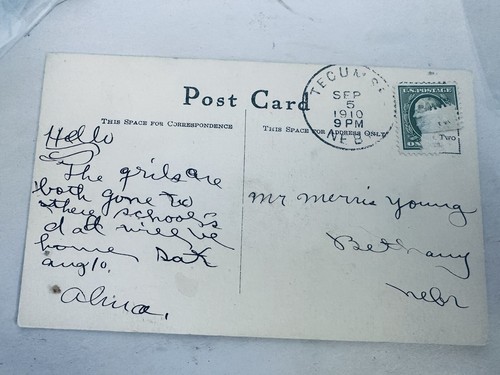 Post Card
THIS SPACE FOR CORRESPONDENCE
THIS SPACE FOR ADDRESS ONLY
TECUMSE
SEP
5
1910
9 PM
NEB
U.S. POSTAGE
Two
Hello
The grils are
both gone to
there school's
home Sat
aug 10.
Mr Merris Young
Bethany
Nebr